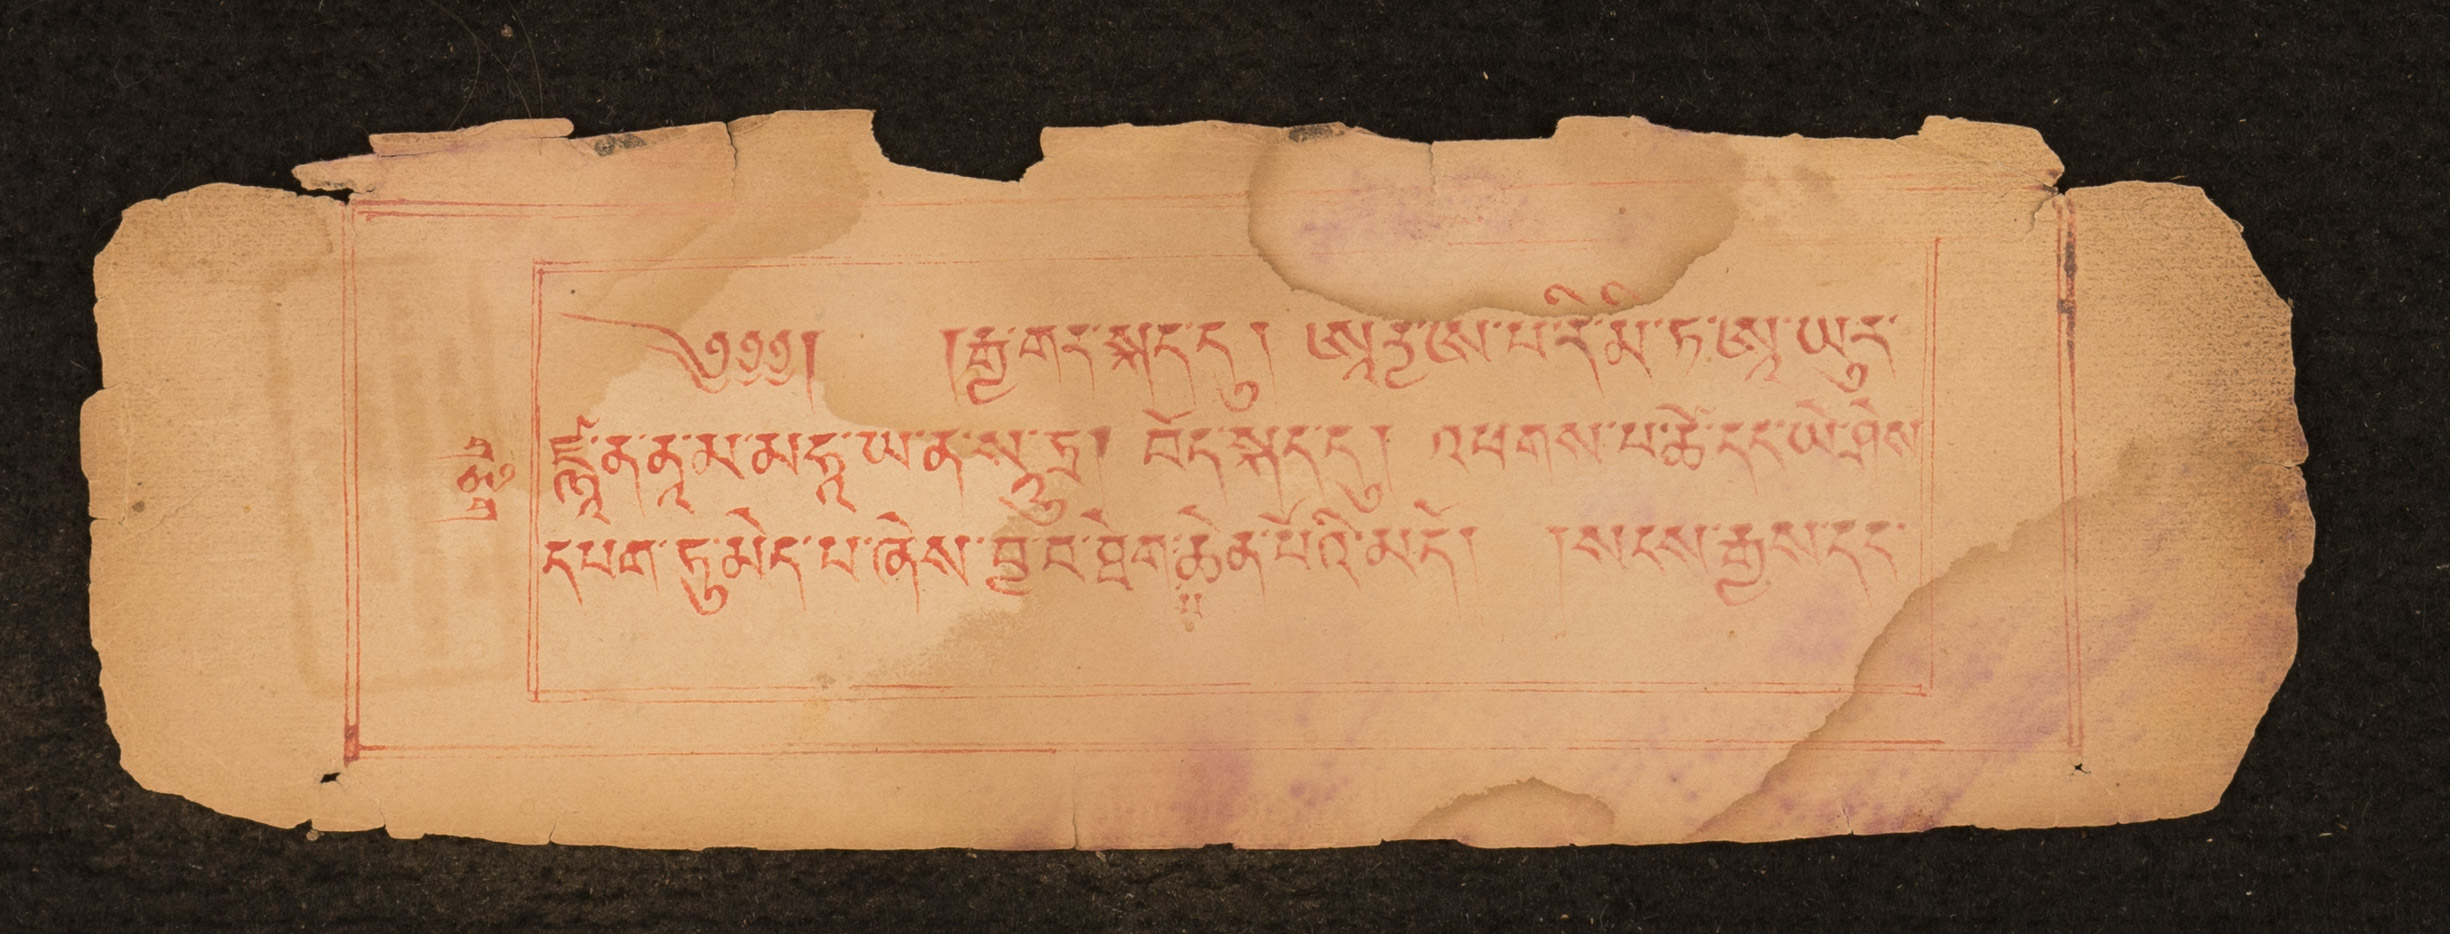 ༄༅༅། །རྒྱ་གར་སྐད་དུ། ཨཱརྱ་ཨ་པ་རི་མི་ཏ་ཨཱ་ཡུར་
ཛྙཱ་ན་ནཱ་མ་མཧཱ་ཡ་ན་སཱུ་ཏྲ། བོད་སྐད་དུ། འཕགས་པ་ཚེ་དང་ཡེ་ཤེས
དཔག་ཏུ་མེད་པ་ཞེས་བྱ་བ་ཐེག་ཆེན་པོའི་མདོ། །སངས་རྒྱས་དང་